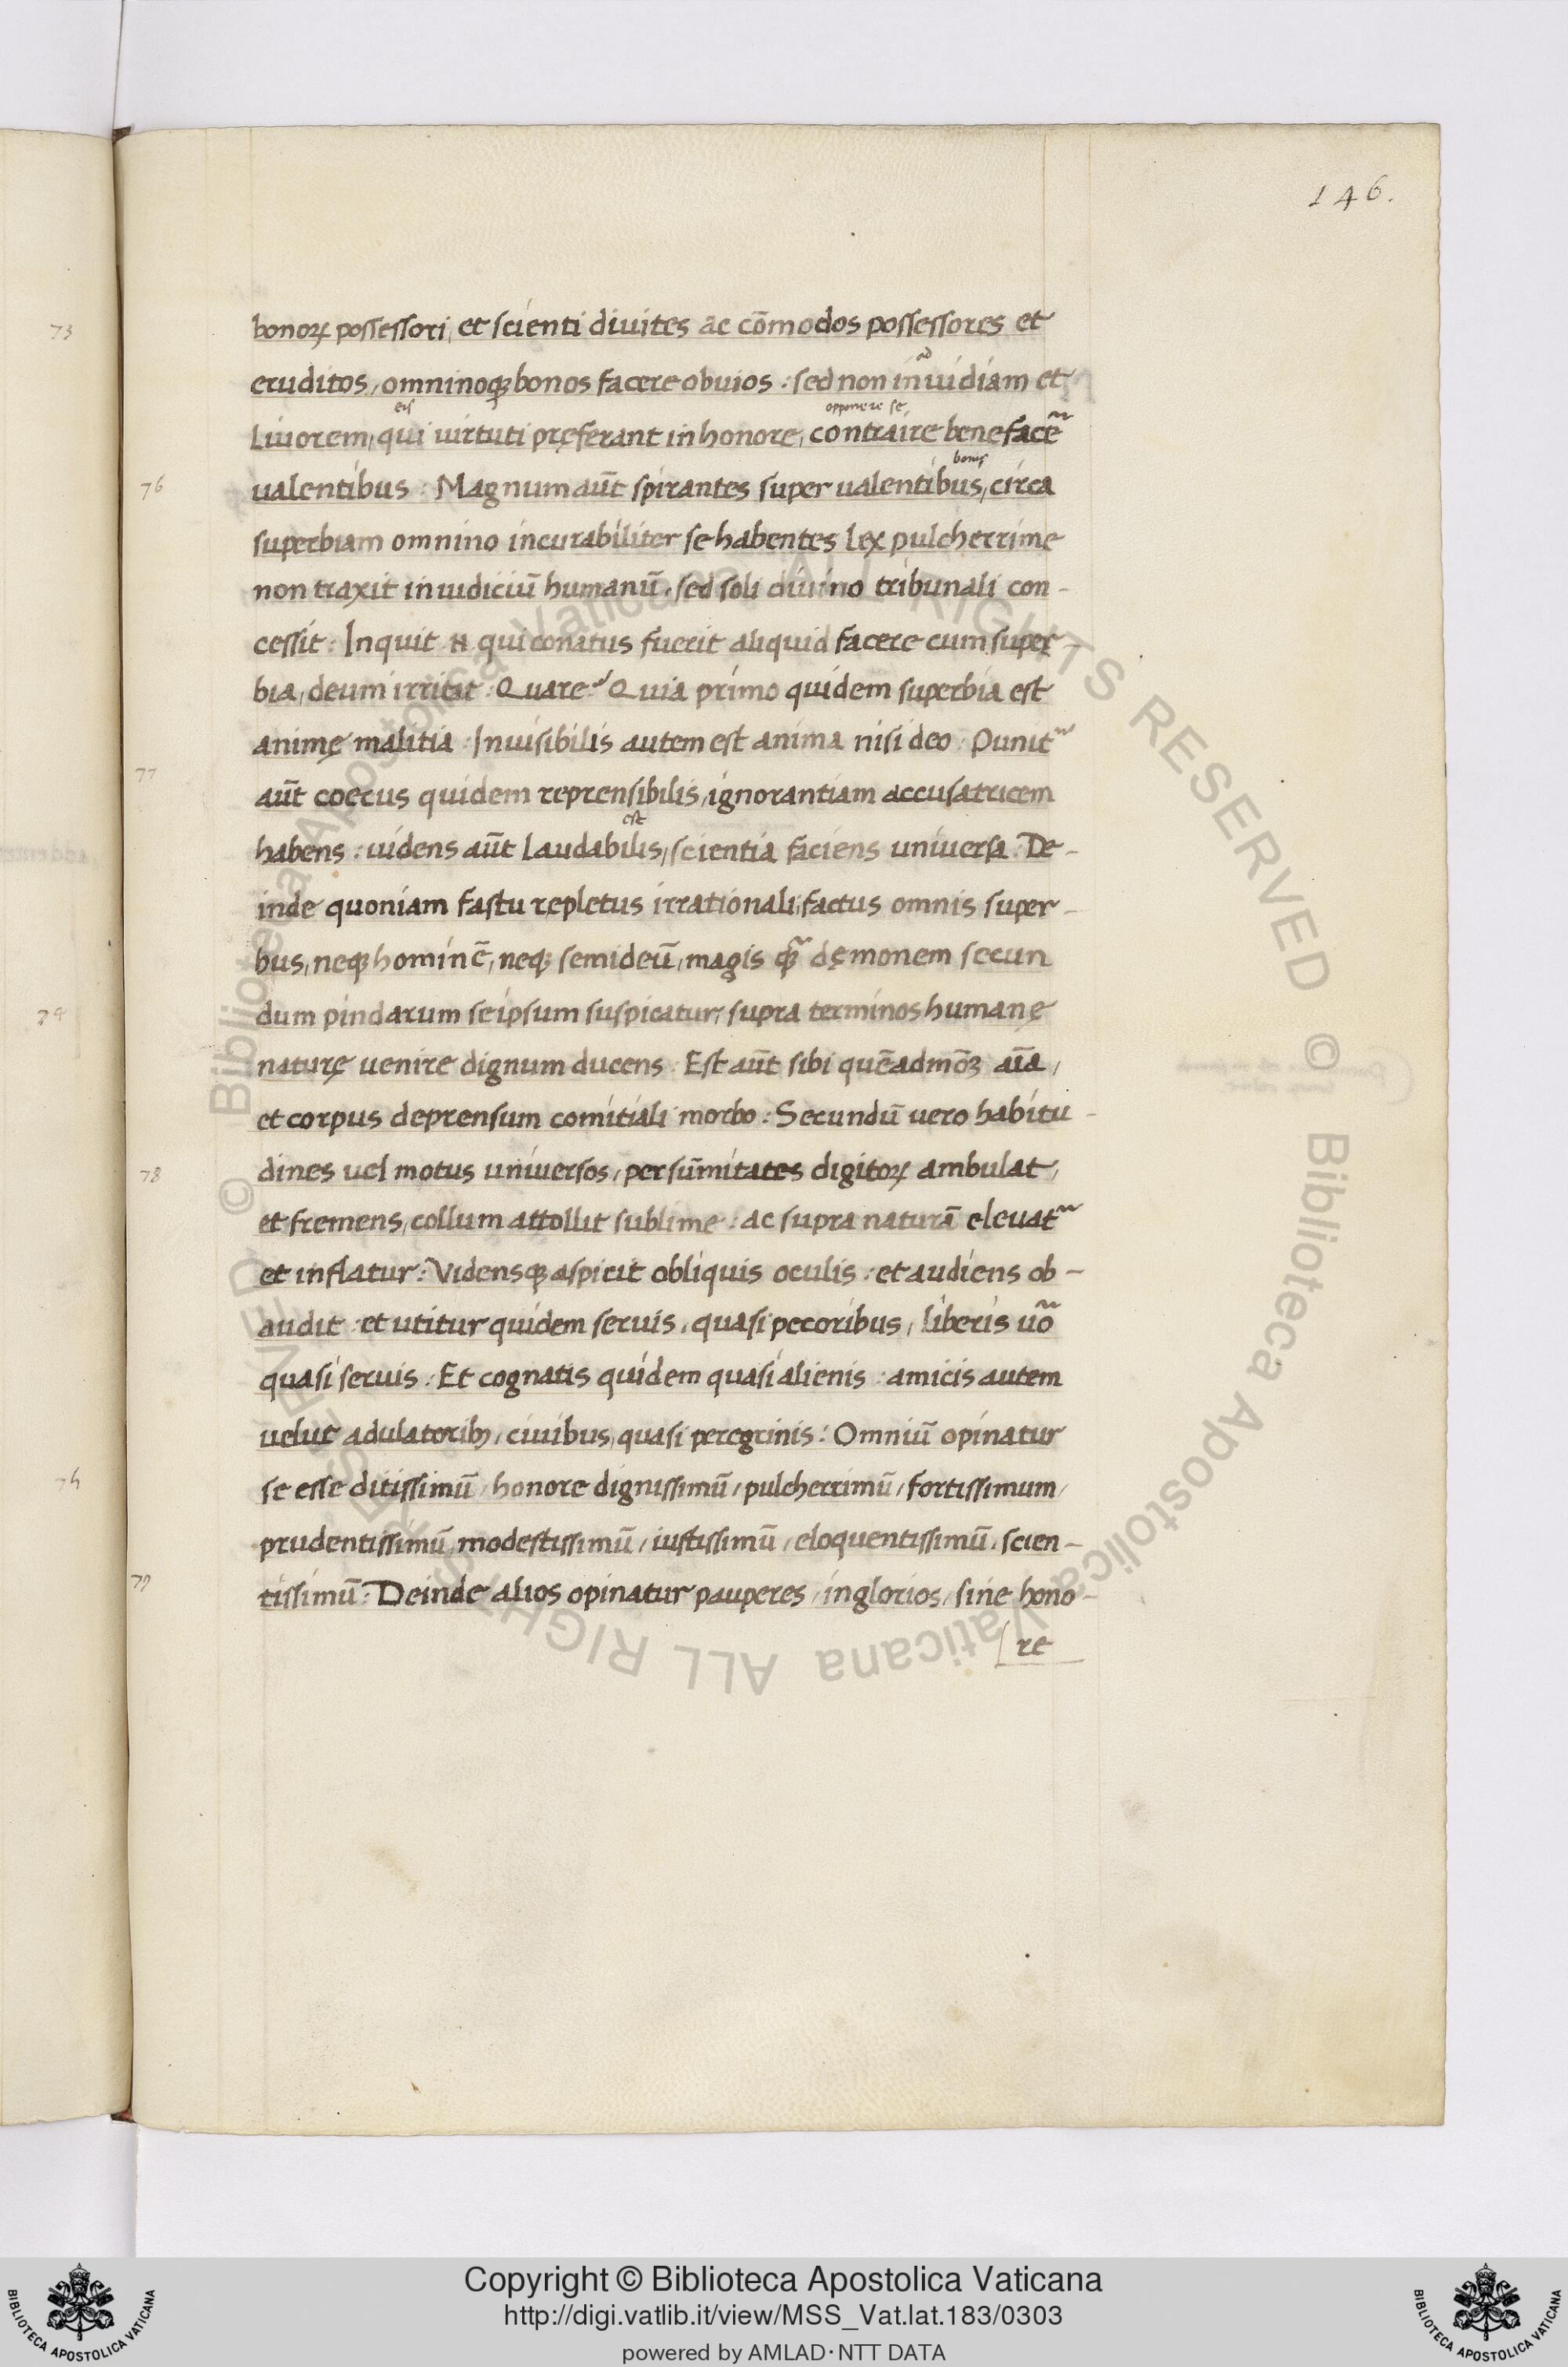 146.
bonoꝝ possessori, et scienti diuites ac cōmodos possessores et
eruditos, omninoqꝫ bonos facere obuios : sed non inuidiam et
eis opponere se
Liuorem, qui uirtuti pręferant in honore, contraire benefacer̃
bonis
76 ualentibus : Magnum aūt spirantes super ualentibus, circa
superbiam omnino incurabiliter se habentes Lex pulcherrime
non traxit in iudiciū humanū, sed soli diuino tribunali con-
cessit : Inquit .n. qui conatus fuerit aliquid facere cum super-
bia, deum irritat : Quare? Quia primo quidem superbia est
animę malitia : Inuisibilis autem est anima nisi deo : Punit᷑
77 aūt coecus quidem reprensibilis, ignorantiam accusatricem
est
habens : uidens aūt Laudabilis, scientia faciens uniuersa : De-
inde quoniam fastu repletus irrationali, factus omnis super-
bus, neqꝫ hominē, neqꝫ semideū, magis qꝫ̃ dęmonem secun
dum pindarum seipsum suspicatur, supra terminos humanę
naturę uenire dignum ducens : Est aūt sibi quēadmōꝫ aīa,
et corpus deprensum comitiali morbo : Secundū uero habitu-
78 dines uel motus uniuersos, per sūmitates digitoꝝ ambulat,
et fremens, collum attollit sublime : ac supra naturā eleuat᷑
et inflatur : Vidensqꝫ aspicit obliquis oculis : et audiens ob-
audit : et utitur quidem seruis, quasi pecoribus, liberis uõ
quasi seruis : Et cognatis quidem quasi alienis : amicis autem
uelut adulatoribꝫ, ciuibus, quasi peregrinis : Omniū opinatur
se esse ditissimū, honore dignissimū, pulcherrimū, fortissimum,
prudentissimū, modestissimū, iustissimū, eloquentissimū, scien-
79 tissimū : Deinde alios opinatur pauperes, inglorios, sine hono-
re
73
74
Copyright © Biblioteca Apostolica Vaticana
http://digi.vatlib.it/view/MSS_Vat.lat.183/0303
powered by AMLAD·NTT DATA
BIBLIOTECA APOSTOLICA VATICANA
BIBLIOTECA APOSTOLICA VATICANA
© Biblioteca Apostolica Vaticana ALL RIGHTS RESERVED © Biblioteca Apostolica Vaticana ALL RIGHTS RESERVED